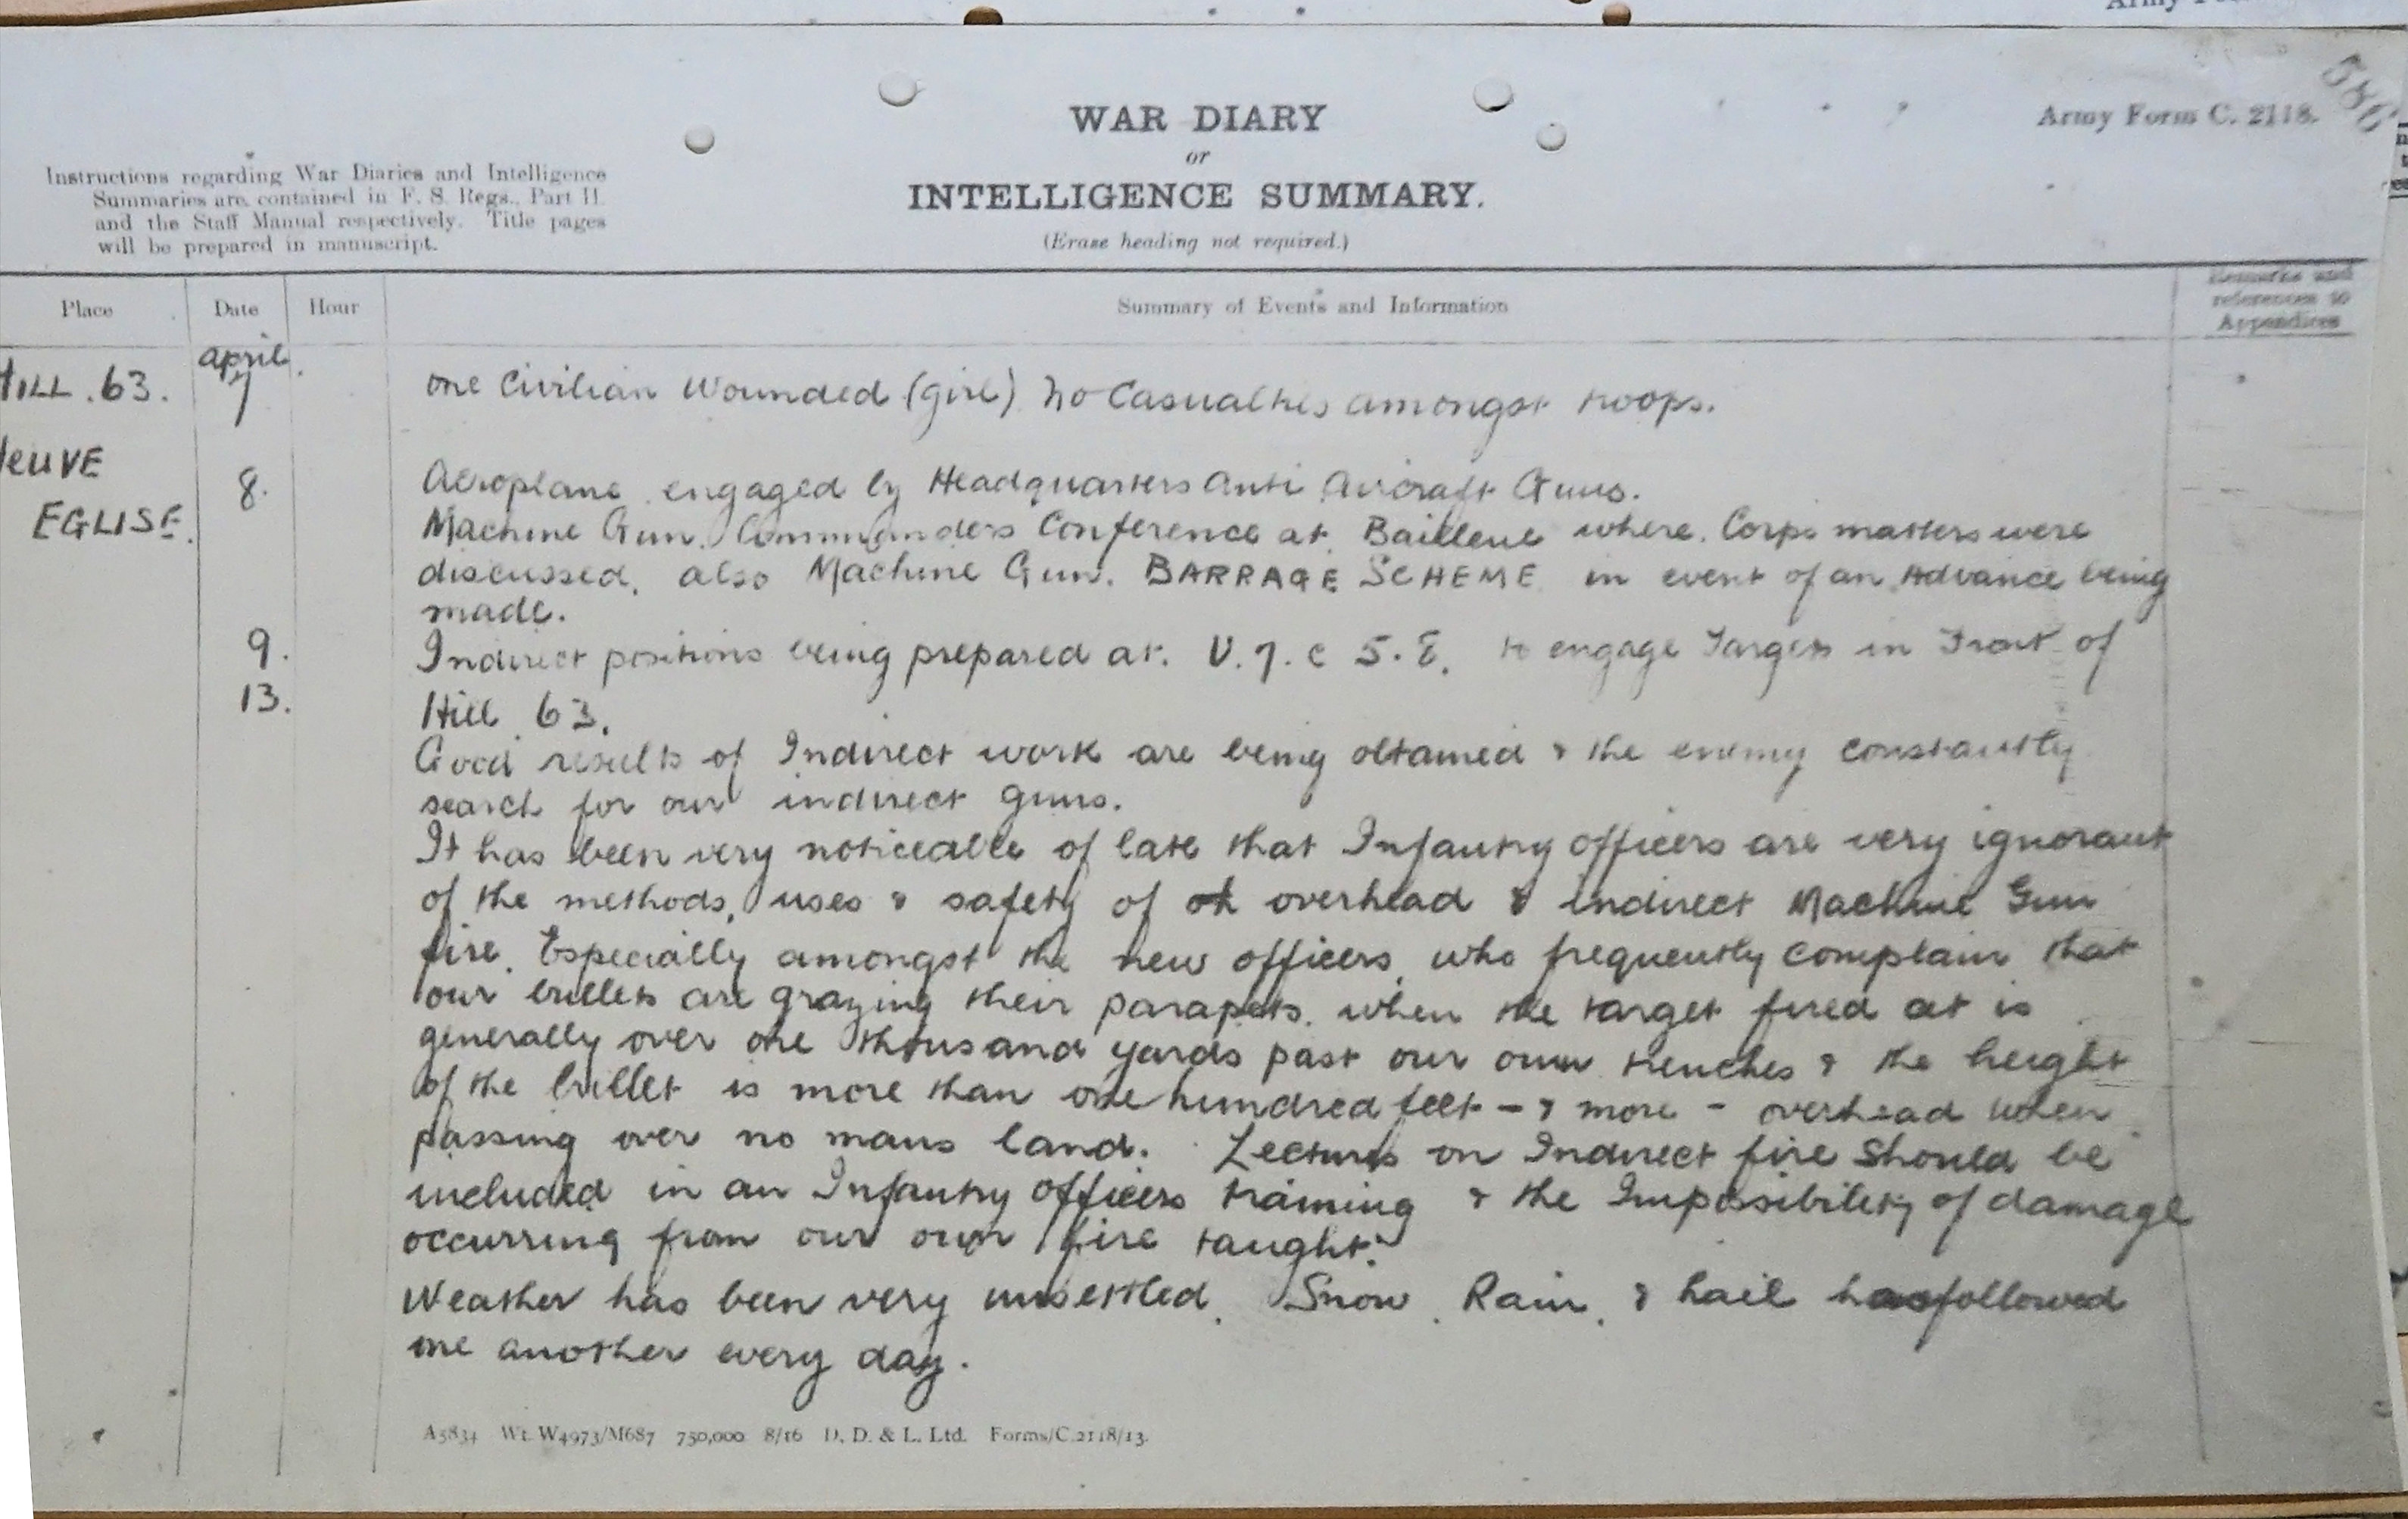 WAR DIARY
or
INTELLIGENCE SUMMARY.
(Erase heading not required.)
Army Form C. 2118.
580
Instructions regarding War Diaries and Intelligence
Summaries are contained in F. S. Regs., Part II.
and the Staff Manual respectively. Title pages
will be prepared in manuscript.
Place Date Hour Summary of Events and Information
Remarks and
references to
Appendices
HILL. 63. april 7 one Civilian Wounded (girl) No Casualties amongst troops.
NEUVE
EGLISE.
8. Aeroplane engaged by Headquarters Anti Aircraft Guns.
Machine Gun. Commanders Conference at Bailleul where Corps matters were
discussed, also Machine Gun. BARRAGE SCHEME in event of an Advance being
made.
9. Indirect positions being prepared at. U.7.c 5.8. to engage Targets in Front of
13. Hill 63.
Good results of Indirect work are being obtained & the enemy constantly
search for our indirect guns.
It has been very noticeable of late that Infantry officers are very ignorant
of the methods, uses & safety of overhead & indirect Machine Gun
fire. Especially amongst the new officers, who frequently complain that
our bullets are grazing their parapets. when the target fired at is
generally over one thousand yards past our own trenches & the height
of the bullet is more than one hundred feet - & more - overhead when
passing over no mans land. Lectures on Indirect fire should be
included in an Infantry officers training & the Impossibility of damage
occurring from our own fire taught.
Weather has been very unsettled. Snow. Rain. & hail has followed
one another every day.
A5834 Wt. W4973/M687 750,000 8/16 D. D. & L. Ltd. Forms/C.2118/13.